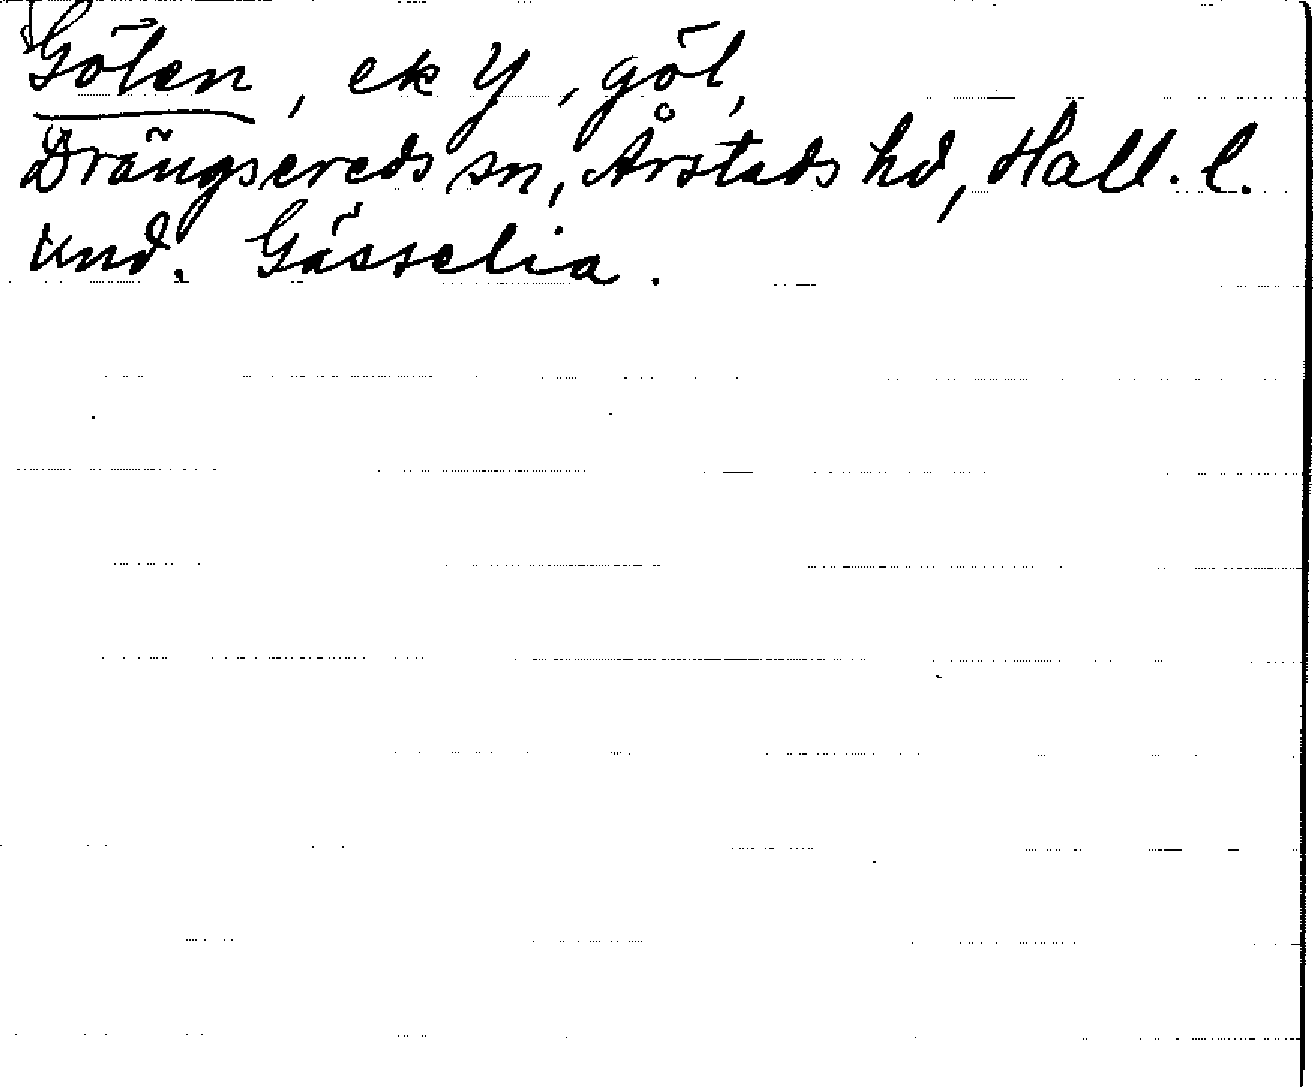 Gölen, ek Y, göl,
Drängsereds sn, Årstads hd, Hall. l.
und. Gässelia.